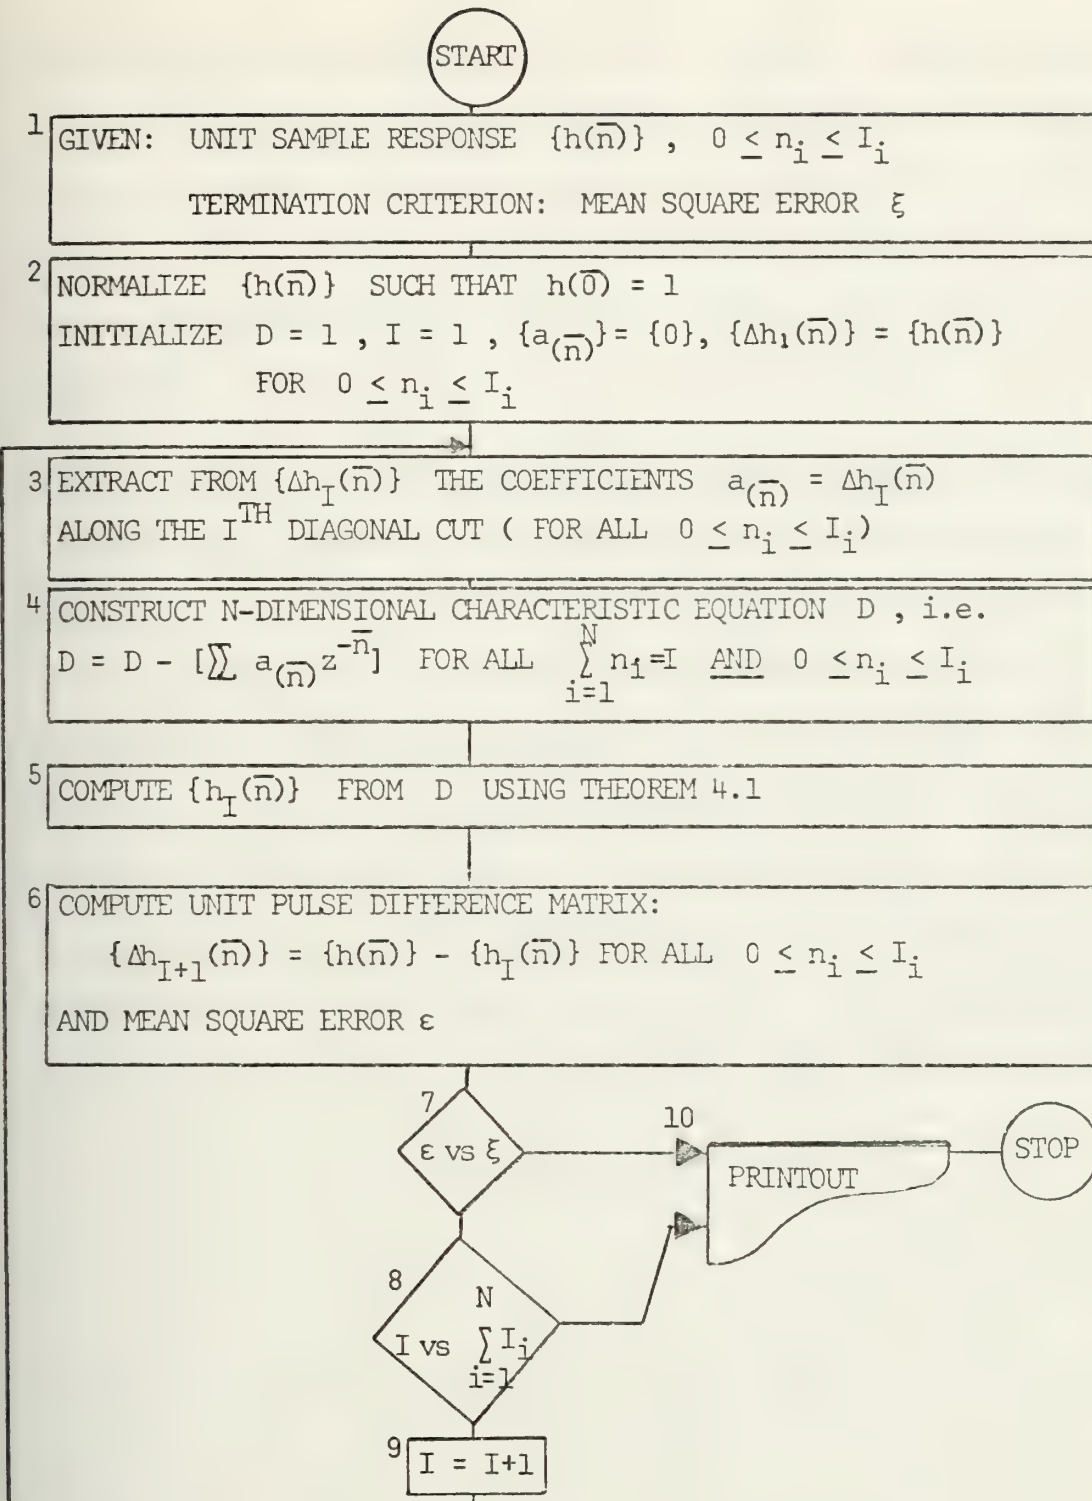 START
1
GIVEN: UNIT SAMPLE RESPONSE {h(n̅)} , 0 ≤ n_i ≤ I_i
TERMINATION CRITERION: MEAN SQUARE ERROR ξ
2
NORMALIZE {h(n̅)} SUCH THAT h(0̅) = 1
INITIALIZE D = 1 , I = 1 , {a_(n̅)} = {0}, {Δh_1(n̅)} = {h(n̅)}
FOR 0 ≤ n_i ≤ I_i
3
EXTRACT FROM {Δh_I(n̅)} THE COEFFICIENTS a_(n̅) = Δh_I(n̅)
ALONG THE I^TH DIAGONAL CUT ( FOR ALL 0 ≤ n_i ≤ I_i)
4
CONSTRUCT N-DIMENSIONAL CHARACTERISTIC EQUATION D , i.e.
D = D - [∑∑ a_(n̅) z^-n̅] FOR ALL N ∑ i=1 n_i=I AND 0 ≤ n_i ≤ I_i
5
COMPUTE {h_I(n̅)} FROM D USING THEOREM 4.1
6
COMPUTE UNIT PULSE DIFFERENCE MATRIX:
{Δh_I+1(n̅)} = {h(n̅)} - {h_I(n̅)} FOR ALL 0 ≤ n_i ≤ I_i
AND MEAN SQUARE ERROR ε
7
ε vs ξ
10
PRINTOUT
STOP
8
N
I vs ∑ I_i
i=1
9
I = I+1